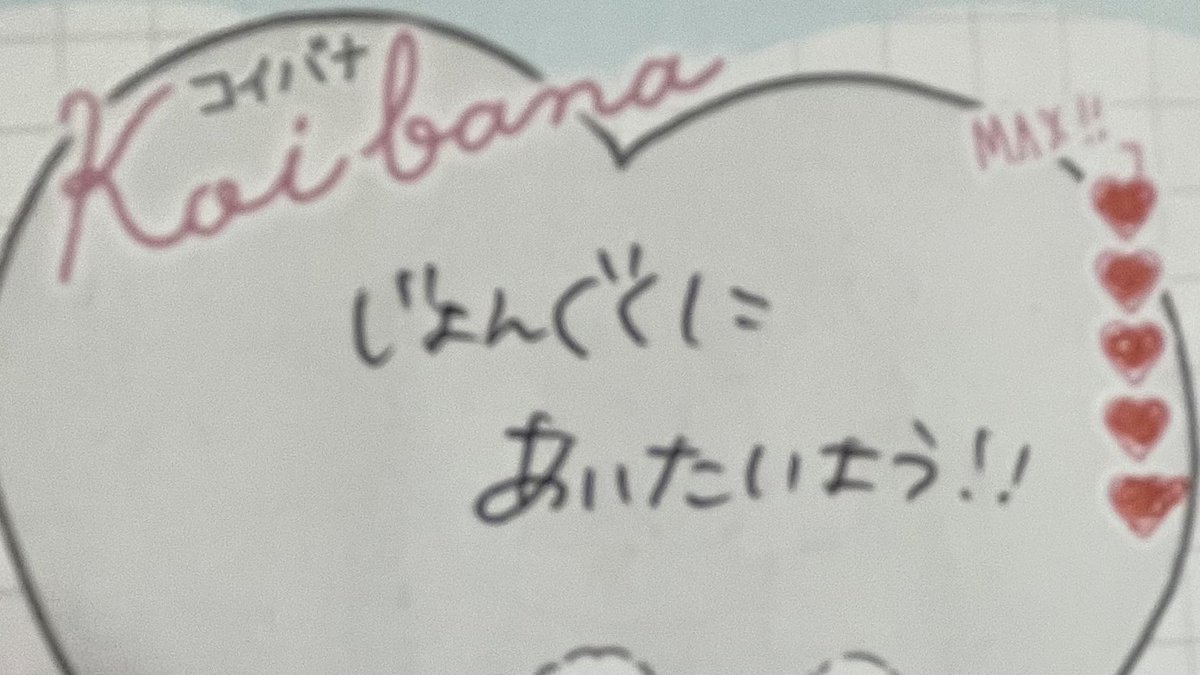 コイバナ
Koibana
MAX!!
じょんぐくに
あいたいよう!!